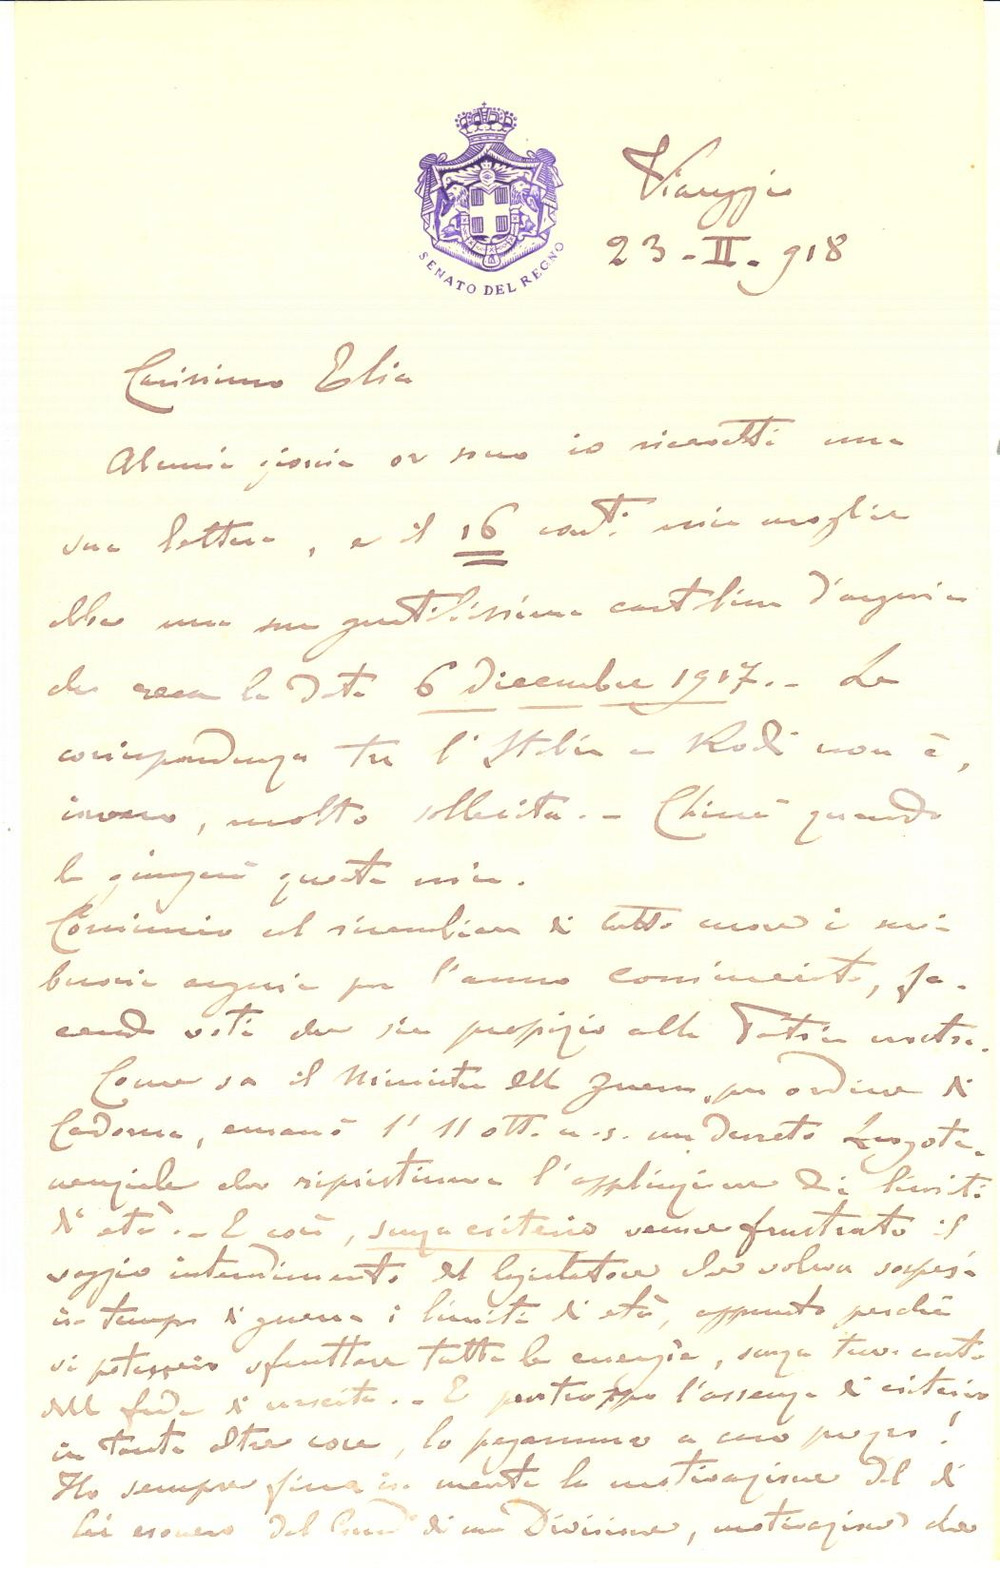 SENATO DEL REGNO
Viareggio
23-II-918
Carissimo Elia
Alcuni giorni or sono io ricevetti una
sua lettera, e il 16 corrte mia moglie
ebbe una sua gentilissima cartolina d'augurio
che reca la data 6 Dicembre 1917.- La
corrispondenza tra l'Italia e Rodi non è,
invero, molto sollecita.- Chissà quando
le giungerà questa mia.
Comincio col ricambiare di tutto cuore i suoi
buoni auguri per l'anno cominciato, fa-
cendo voti che sia propizio alla Patria nostra.
Come sa il Ministro della Guerra, per ordine di
Cadorna, emanò l'11 ott. u.s. un Decreto Luogote-
nenziale che ripristinava l'applicazione dei limiti
di età.- E così, senza criterio venne frustrato il
saggio intendimento del legislatore che voleva sospesi
in tempo di guerra i limiti di età, appunto perchè
si potessero sfruttare tutte le energie, senza tener conto
della fede di nascita.- E purtroppo l'assenza di criterio
in tante altre cose, lo pagammo a caro prezzo!
Ho sempre fissa in mente la motivazione del di
Lei esonero dal Comdo di una Divisione, motivazione che